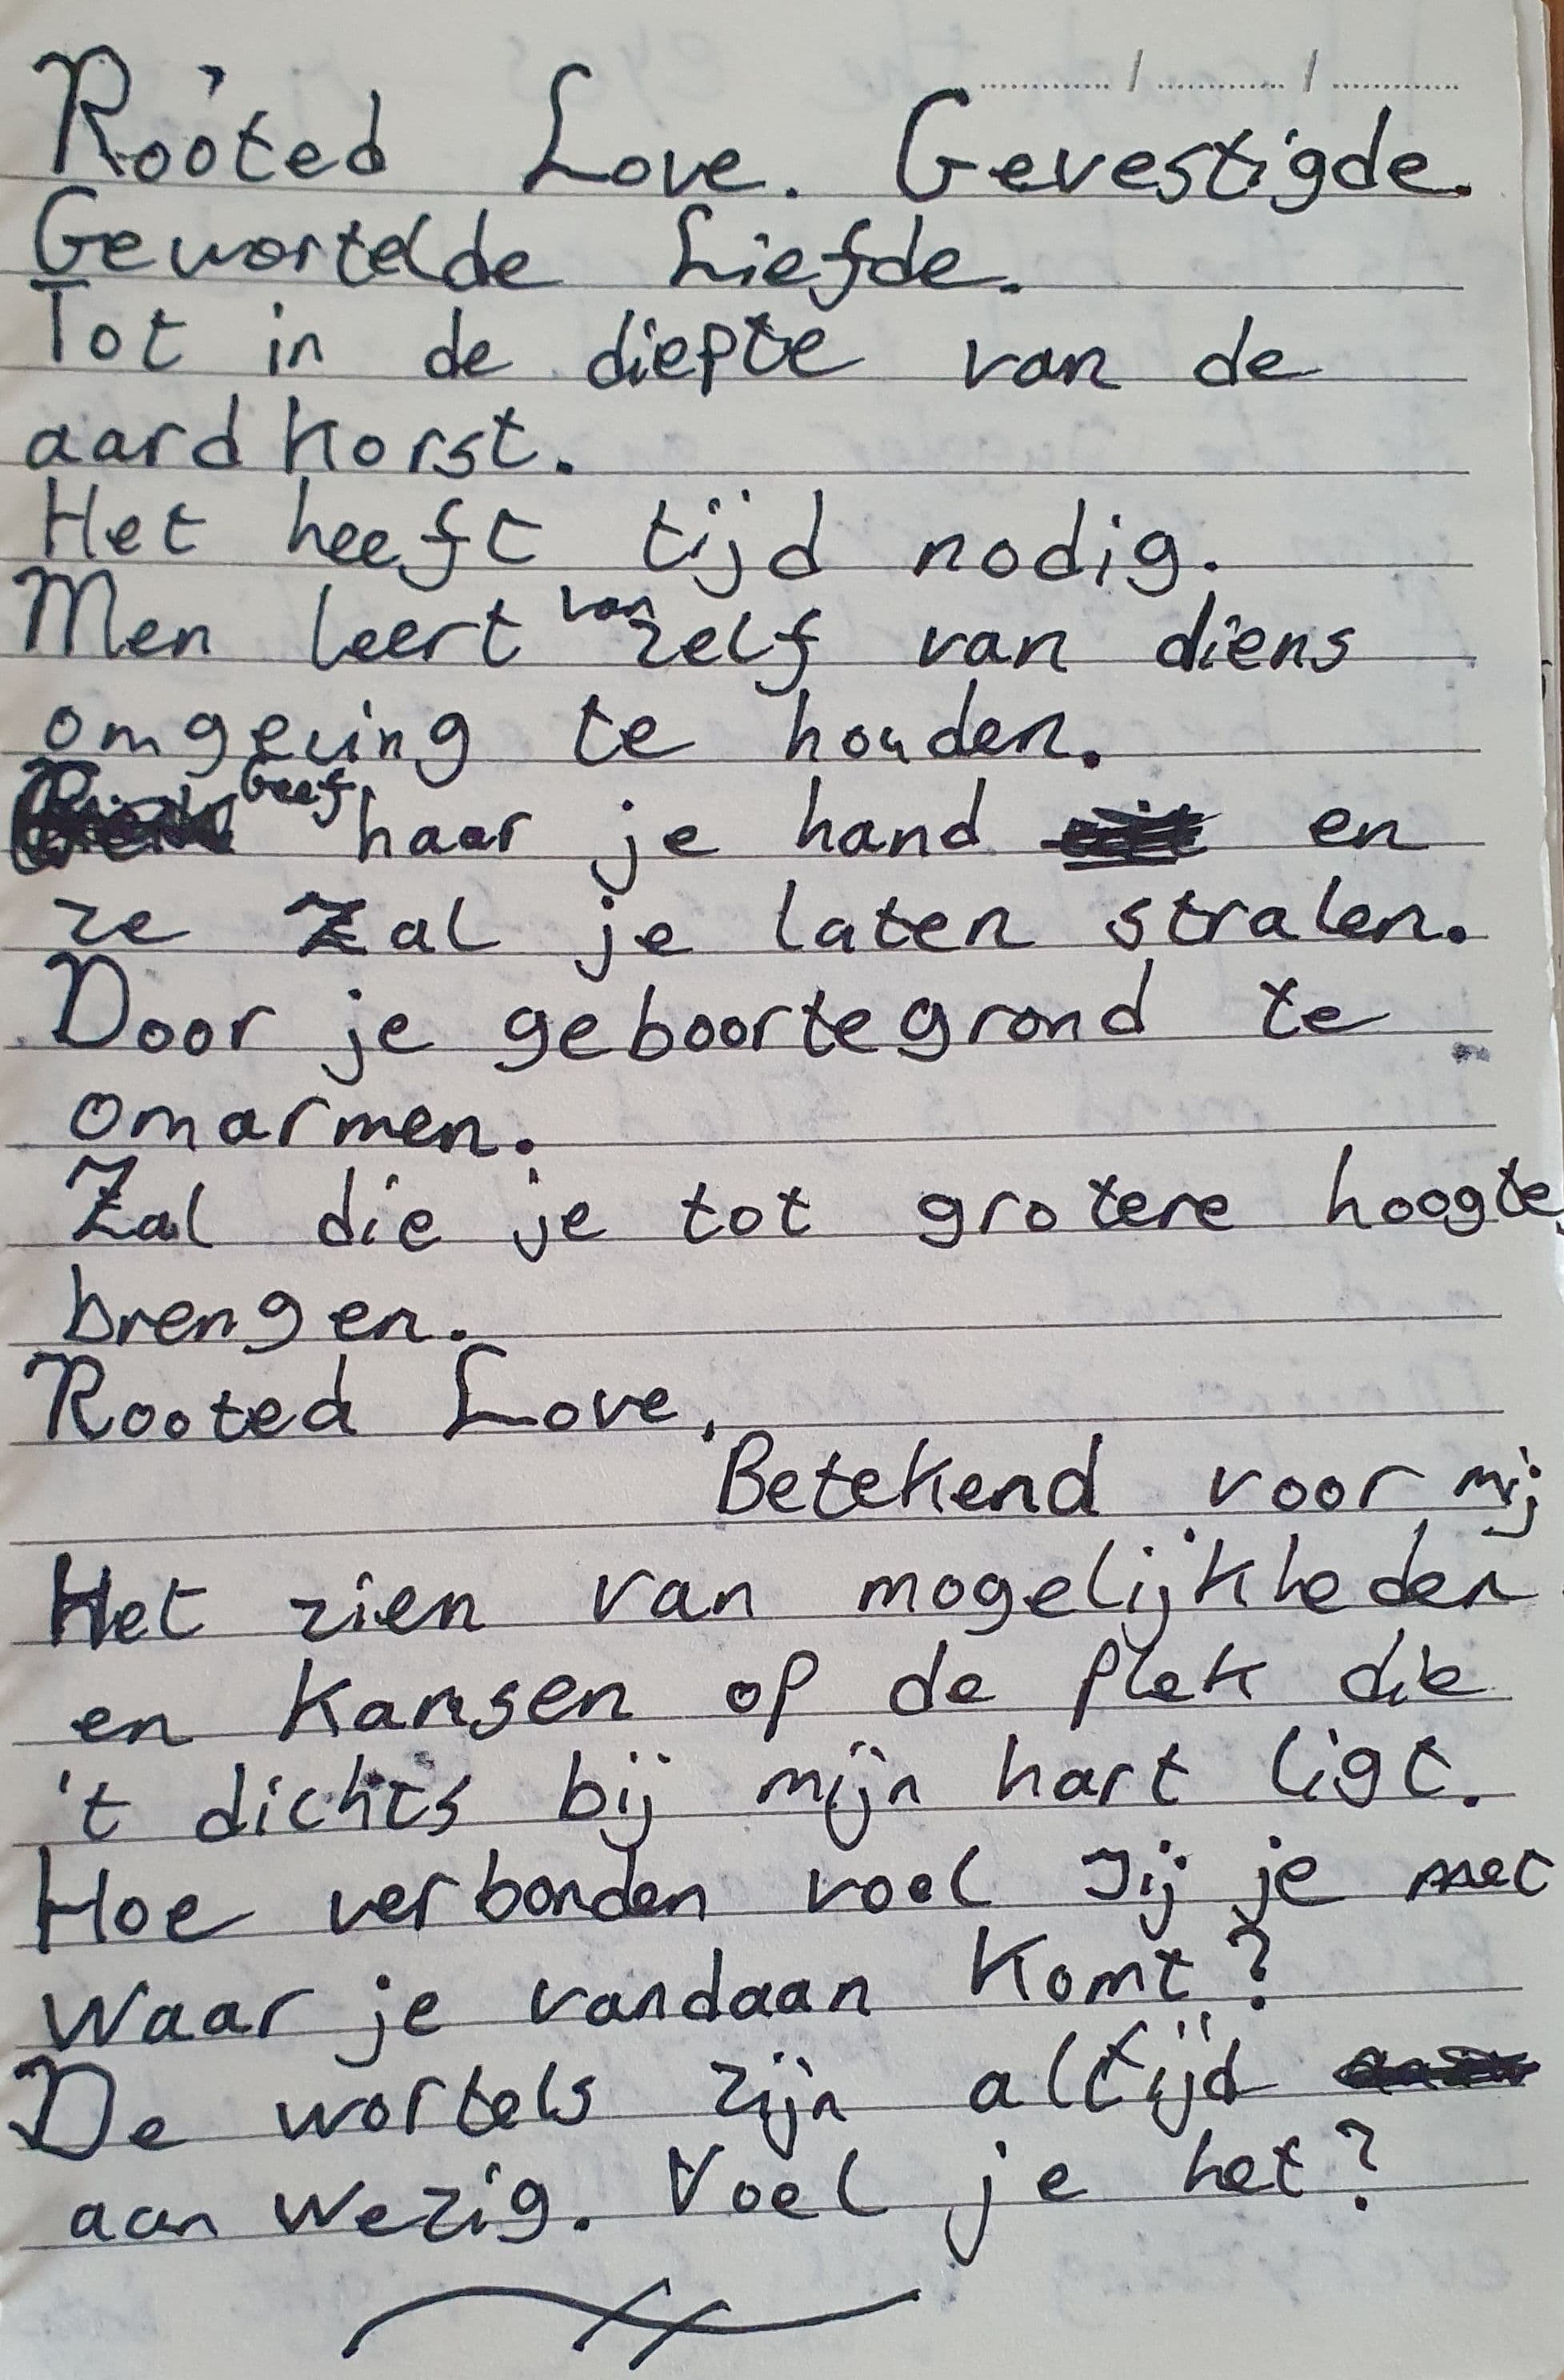 Rooted Love. Gevestigde.
Gewortelde Liefde.
Tot in de diepte van de
aardkorst.
Het heeft tijd nodig.
Men leert vanzelf van diens
omgeving te houden.
Geef haar je hand en
ze zal je laten stralen.
Door je geboortegrond te
omarmen.
Zal die je tot grotere hoogte
brengen.
Rooted Love.
Betekend voor mij
Het zien van mogelijkheden
en kansen op de plek die
't dichts bij mijn hart ligt.
Hoe verbonden voel jij je met
waar je vandaan komt?
De wortels zijn altijd
aanwezig. Voel je het?